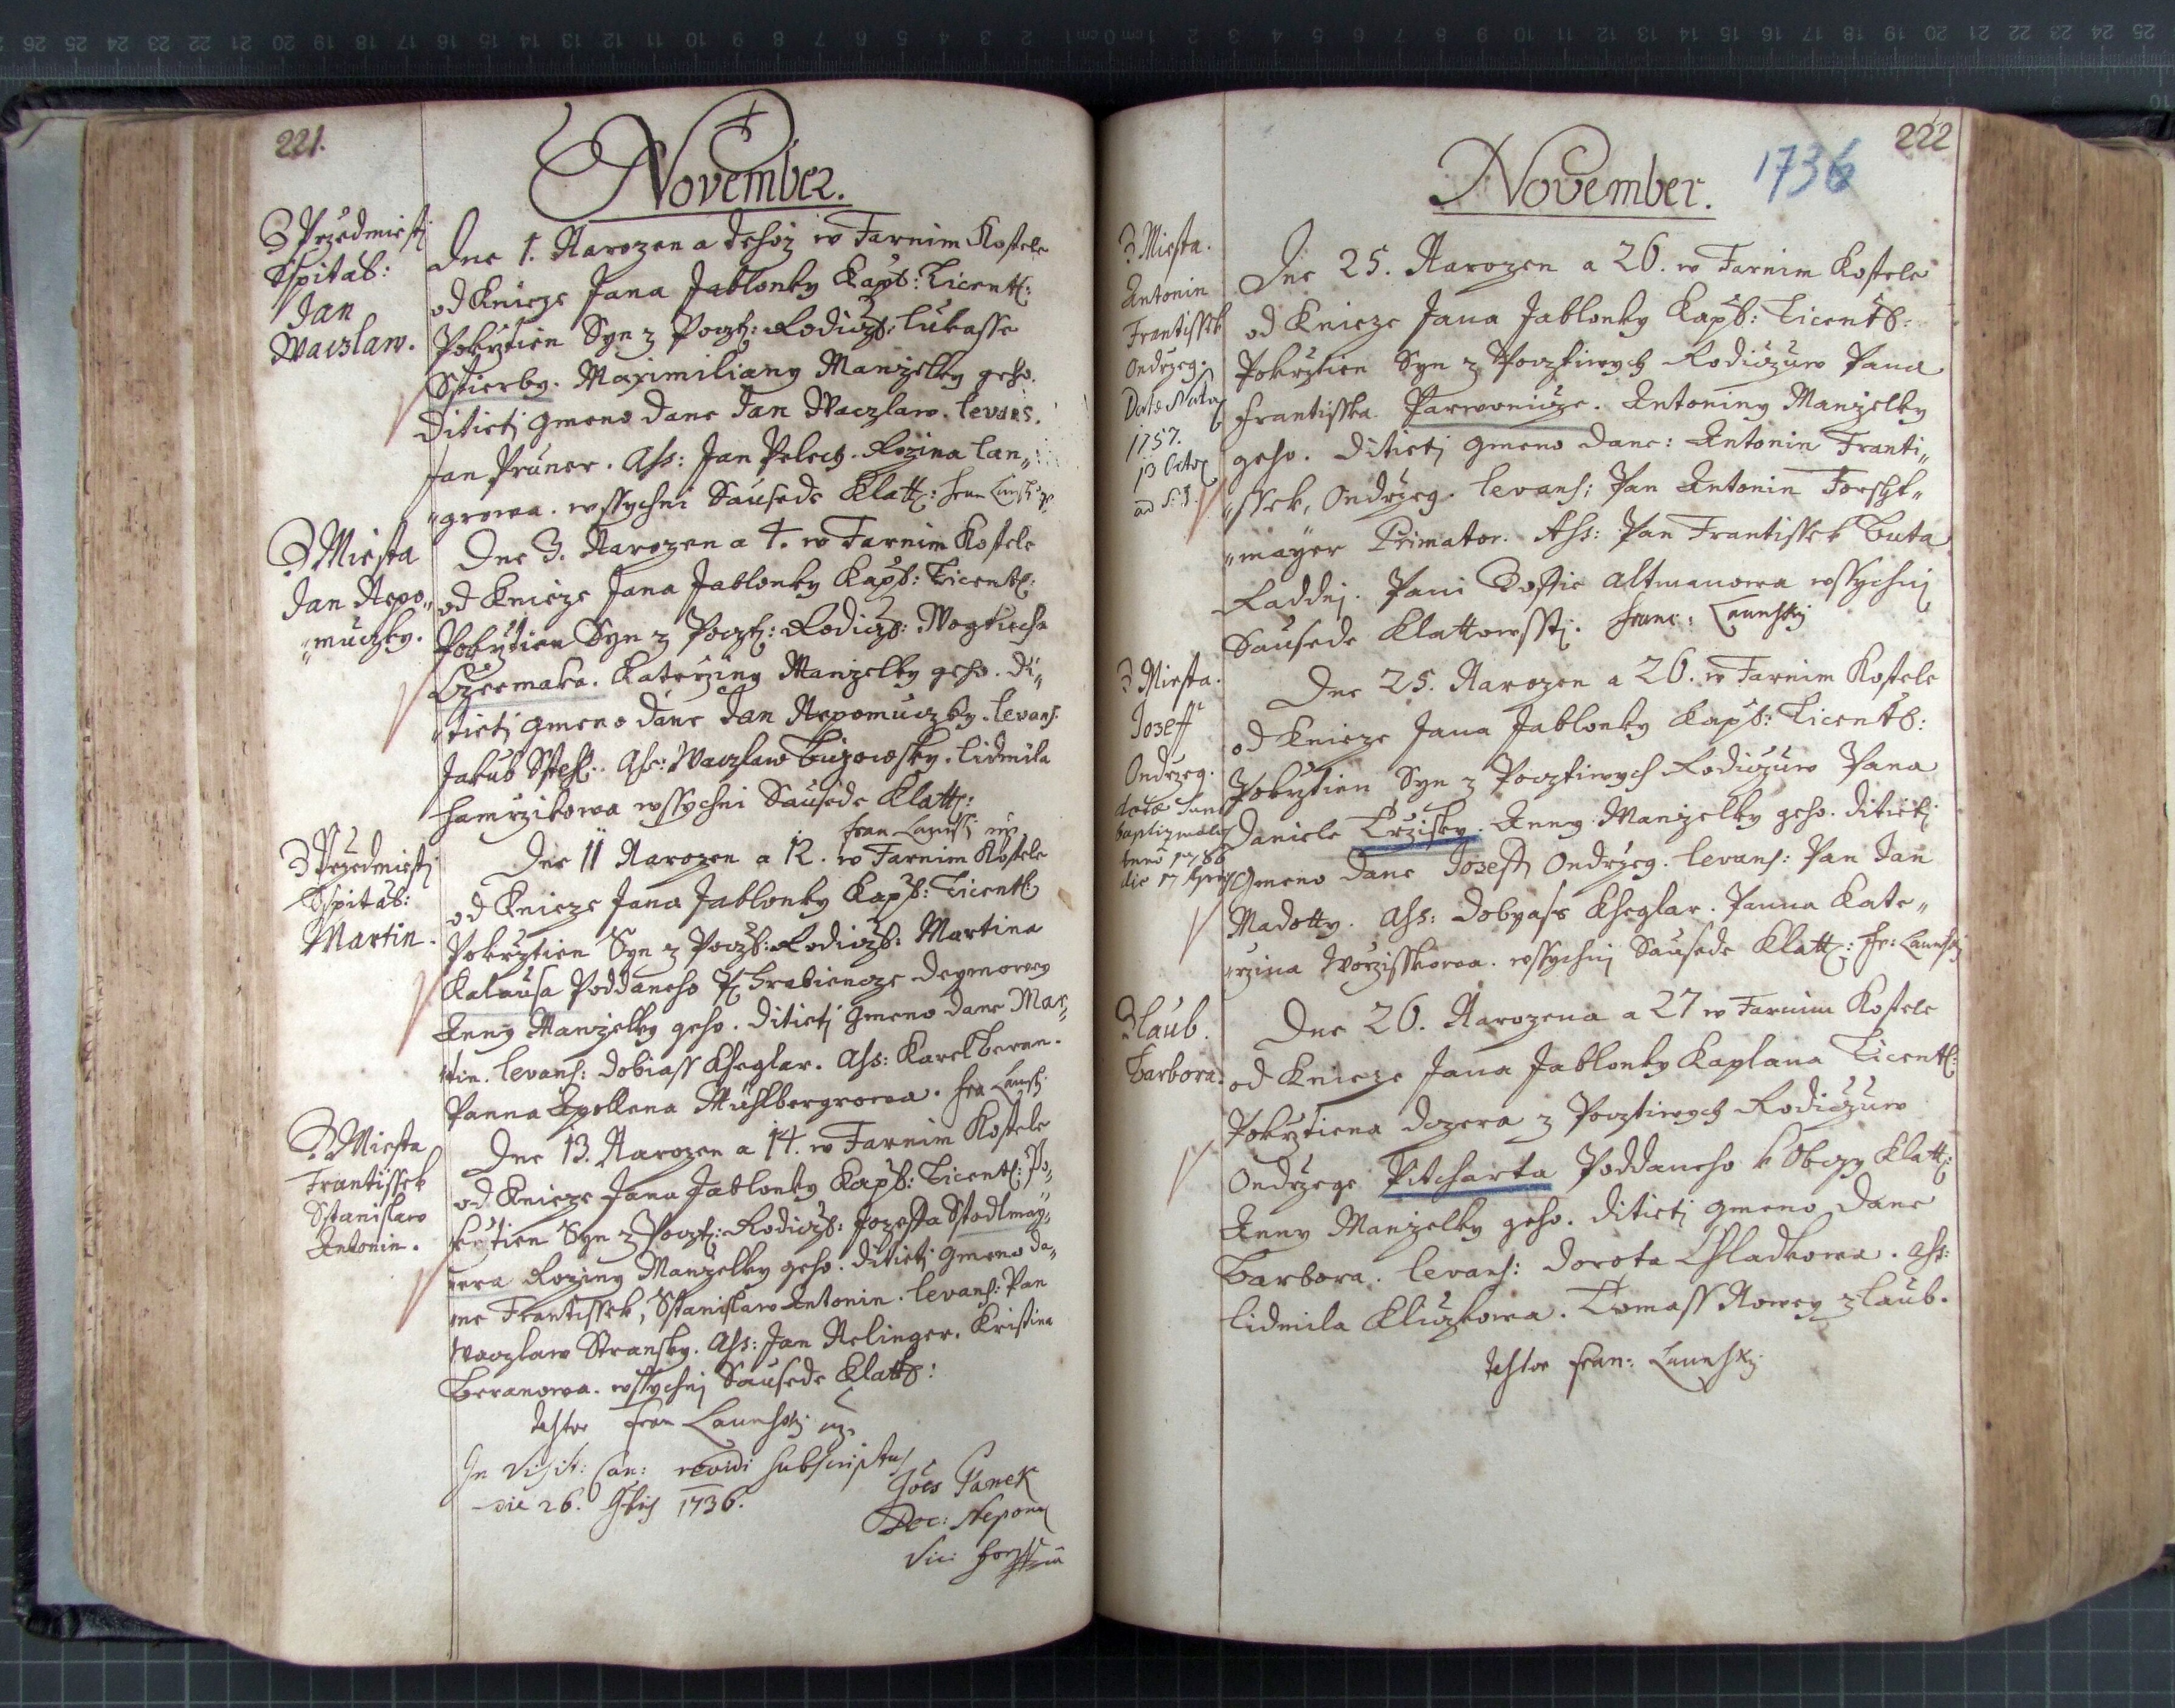 221.
November.
Z Przedmiesti
Sspitab:
Jan
Waczlaw.
Dne 1. Narozen a tehoz w Farnim Kostele
od Knieze Jana Jablonky Kapl: Licent:
Pokrztien Syn z Pocztt: Rodiczů: Lukasse
Sstierby. Maximiliany Manzelky geho.
Ditieti gmeno dane Jan Waczlaw. Levans.
Jan Pruner. Ass: Jan Pelech. Rozina Lan„
„growa. wssychni Sausede Klatt:
Z Miesta
Jan Nepo„
„muczky.
Dne 3. Narozen a 4. w Farnim Kostele
od Knieze Jana Jablonky Kapl: Licent:
Pokrztien Syn z Poczt: Rodiczů: Wogtiecha
Czermaka. Katerziny Manzelky geho. Di„
„tieti gmeno dane Jan Nepomuczky. Levans:
Jakub Ass: Waczlaw Lidmila
Hamrzikowa wssychni Sausede Klatt:
Z Przedmiesti
Sspitab:
Martin.
Dne 11 Narozen a 12. w Farnim Kostele
od Knieze Jana Jablonky Kapl: Licent:
Pokrztien Syn z Poczt: Rodiczů: Martina
Kalausa Poddaneho P: Hrabiencze Deymowey
Anny Manzelky geho. Ditieti Gmeno dane Mar„
„tin. Levans: Dobiass Kheglar. Ass: Karel Beran.
Panna Apollena Mühlbergrowa.
Z Miesta
Frantissek
Stanislaw
Antonin.
Dne 13. Narozen a 14. w Farnim Kostele
od Knieze Jana Jablonky Kapl: Licent: Po„
krztien Syn z Poczt: Rodiczů: Jozeffa Stadlmay„
„era Roziny Manzelky geho. Ditieti Gmeno da„
„ne Frantissek, Stanislaw Antonin. Levans: Pan
Waczlaw Stransky. Ass: Jan Relinger. Kristina
Beranowa. wssychni Sausede Klatt:
In Visit: Can: revidi subscriptus
die 26. 9bris 1736.
Joes Panek
Dec: Nepom
Vic:
222
November.
1736
Z Miesta.
Antonin
Frantissek
Ondrzeg.
1757.
Dne 25. Narozen a 26. w Farnim Kostele
od Knieze Jana Jablonky Kapl: Licent:
Pokrztien Syn z Pocztiwych Rodiczuw Pana
Frantisska Parwonicze. Antoniny Manzelky
geho. Ditieti gmeno dane: Antonin Franti„
„ssek, Ondrzeg. Levans: Pan Antonin Forscht„
„mayer Primator. Ass: Pan Frantissek Buta
Raddni. Pani Zoffie Altmanowa wssychni
Sausede Klattowssti. Franc:
Z Miesta.
Jozeff
Ondrzeg.
Dne 25. Narozen a 26. w Farnim Kostele
od Knieze Jana Jablonky Kapl: Licent:
Pokrztien Syn z Pocztiwych Rodiczuw Pana
Daniele Trzisky. Anny Manzelky geho. Ditieti
Gmeno dane Jozeff Ondrzeg. Levans: Pan Jan
Madotty. Ass: Dobyass Kheglar. Panna Kate„
„rzina Worzisskowa. wssychni Sausede Klatt:
Z Laub.
Barbora.
Dne 26. Narozena a 27 w Farnim Kostele
od Knieze Jana Jablonky Kaplana Licent:
Pokrztiena Dczera z Pocztiwych Rodiczuw
Ondrzege Pitcharta Poddaneho k Obczy Klatt:
Anny Manzelky geho. Ditieti gmeno dane
Barbora. Levans: Dorota Chladkowa. Ass:
Lidmila Kliczkowa. Tomass Nowey z Laub.